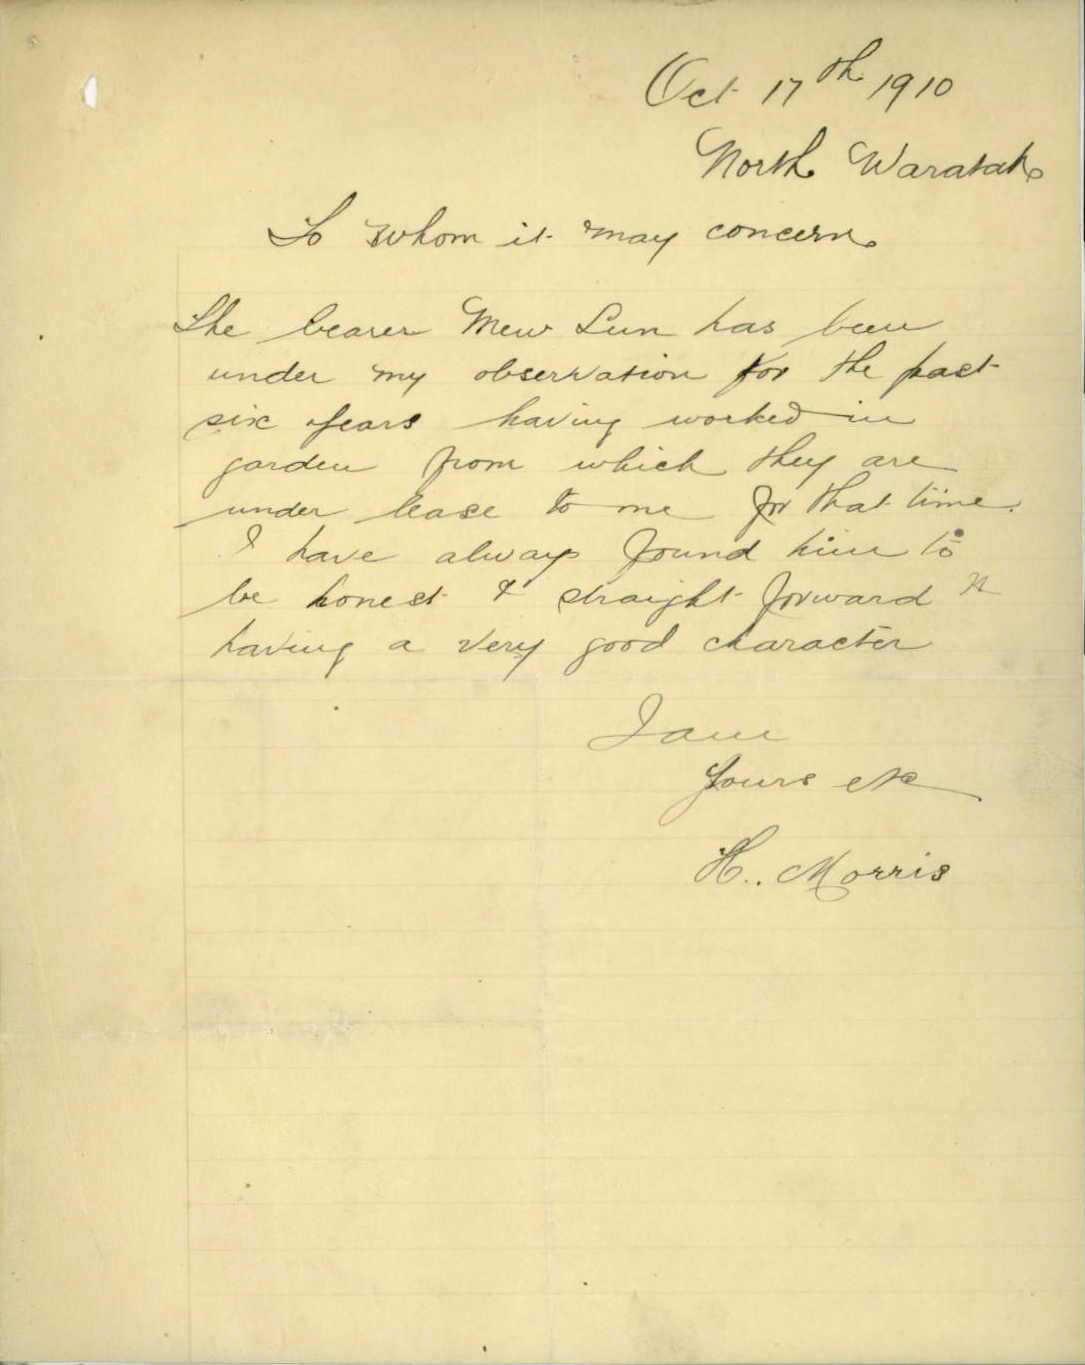 Oct 17th 1910
North Waratah
To whom it may concern
The bearer Mew Lun has been
under my observation for the past
six years having worked in
garden from which they are
under lease to me for that time.
I have always found him to
be honest & straight forward &
having a very good character
I am
Yours etc
H. Morris